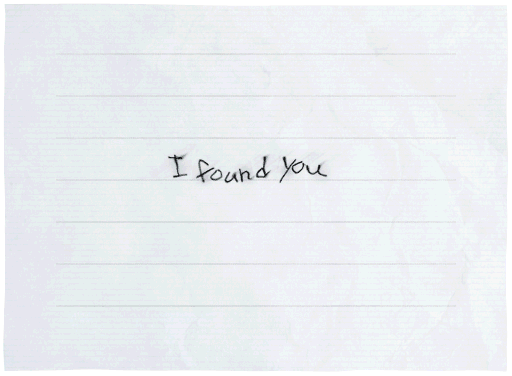 I found you